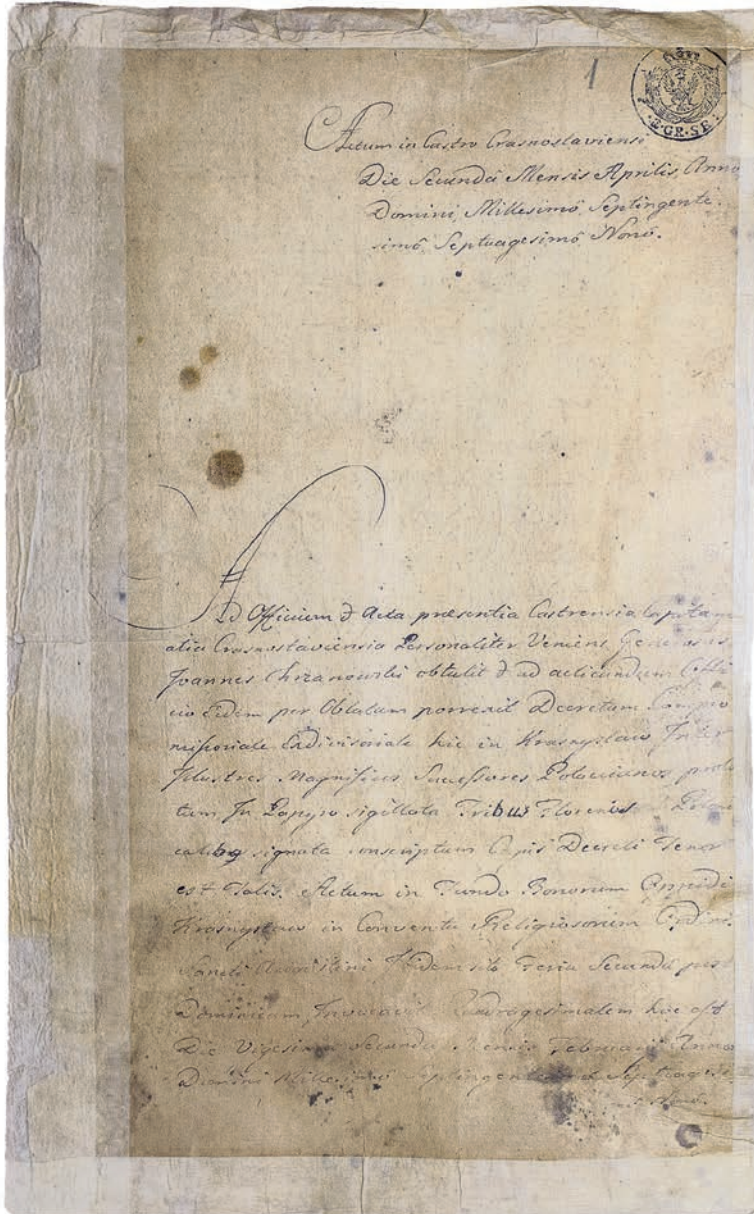 1
2·GR·SE
Actum in Castro Crasnostaviensi
Die Secundâ Mensis Aprilis Anno
Domini Millesimô Septingente-
simô Septuagesimô Nonô.
Ad Officium & Acta præsentia Castrensia Capitane
alia Crasnostaviensia Personaliter Veniens Generosus
Joannes Chrzanowski obtulit & ad acticandum Offi
cio Eidem per Oblatam porrexit Decretum Compro
missoriale Exdivisoriale hic in Krasnystaw Inter
Illustres Magnificos Successores Potocianos prola
tum In Papyro sigillata Tribus Florenis Poloni
calibq signata conscriptum Cujus Decreti Tenor
est Talis. Actum in Fundo Bonorum Oppidi
Krasnystaw in Conventu Religiosorum Ordinis
Sancti Augustini Ibidem sito Feria Secunda post
Dominicam Invocavit Quadragesimalem hoc est
Die Vigesima Secunda Mensis Februarij Anno
Domini Millesimô Septingentesimô Septuagesi
Nonô.